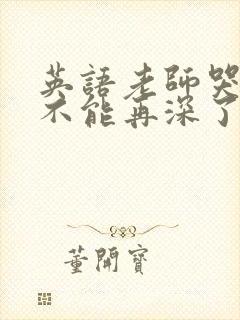 英語老師哭
不能再深了
董開寶